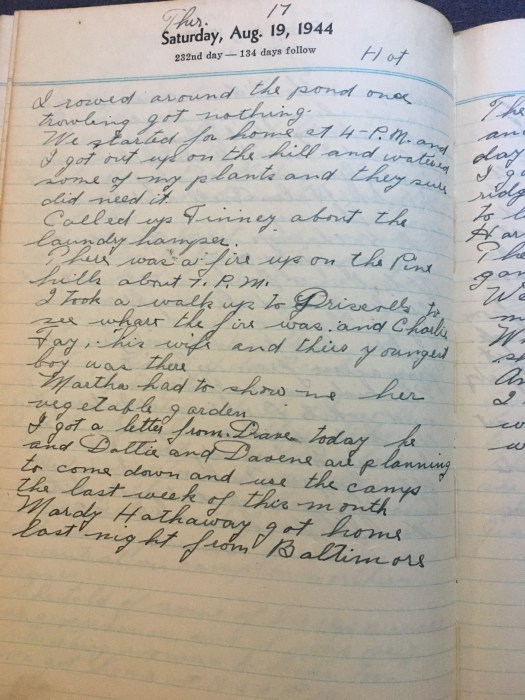 Thur. 17
Saturday, Aug. 19, 1944
232nd day — 134 days follow
Hot
I rowed around the pond once
trowling got nothing.
We started for home at 4-P.M. and
I got out up on the hill and watered
some of my plants and they sure
did need it
Called up Finney about the
laundry hamper.
There was a fire up on the Pine
hills about 7. P.M.
I took a walk up to Driscolls to
see whare the fire was. and Charlie
Fay, his wife and thirs youngest
boy was there
Martha had to show me her
vegetable garden
I got a letter from Dave today he
and Dottie and Davene are planning
to come down and use the camp
the last week of this month
Mardy Hathaway got home
last night from Baltimore
The
an
day
I go
ridg
to
Har
The
gan
We
Wh
an
I